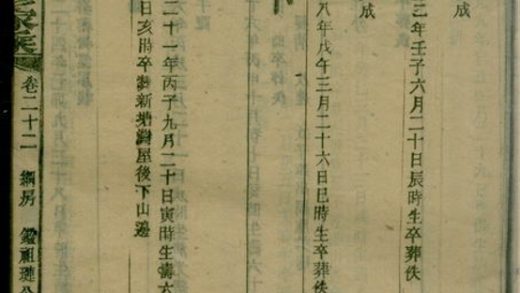 成
三年壬子六月二十日辰時生卒葬佚
成
八年戊午三月二十六日巳時生卒葬佚
二十一年丙子九月二十日寅時生壽六
日亥時卒葬新塘灣屋後下山邊
卷二十二 綱房 鑑祖璉公